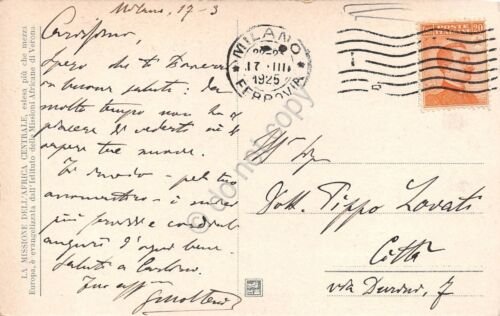 Milano, 17-3
Carissimo,
Spero che ti troverai
in buona salute: da
molto tempo non ho il
piacere di vederti nè di
sapere tue nuove.
Ti invio - pel tuo
onomastico - i miei
più fervidi e cordiali
auguri d'ogni bene.
Saluti a
Tuo aff.
MILANO
17 • III
1925
FERROVIA
POSTE
20
Dott. Pippo Lovati
Città
via Durini, 7
LA MISSIONE DELL'AFRICA CENTRALE, estesa più che mezza
Europa, è evangelizzata dall'Istituto delle Missioni Africane di Verona
do not copy